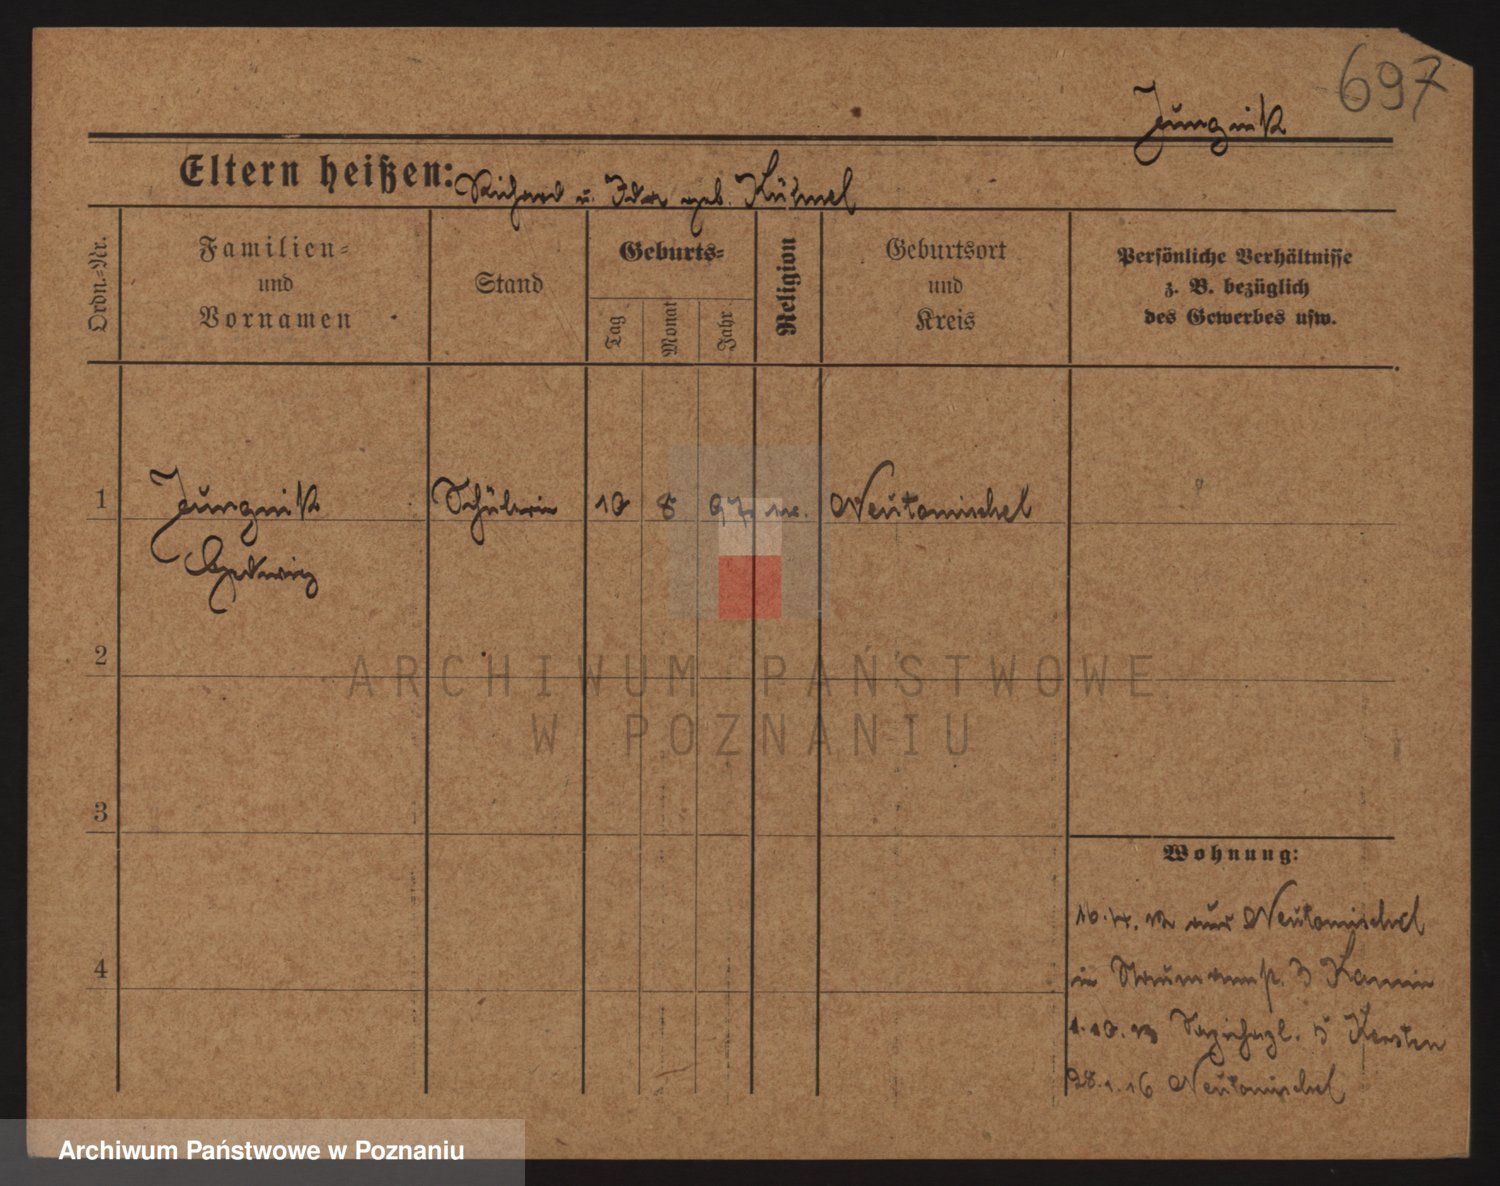 697
Jungnik
Eltern heißen: Richard u. Ida geb. Kühmel
Ordn.-Nr.
Familien-
und
Vornamen
Stand
Geburts-
Tag
Monat
Jahr
Religion
Geburtsort
und
Kreis
Persönliche Verhältnisse
z. B. bezüglich
des Gewerbes usw.
1 Jungnik Schülerin 10 8 97 Neutomischel
Hedwig
2
3
4
Wohnung:
Neutomischel
in 3 Kamin
1.10. 5 Kersten
28.1.16 Neutomischel
ARCHIWUM PAŃSTWOWE
W POZNANIU
Archiwum Państwowe w Poznaniu